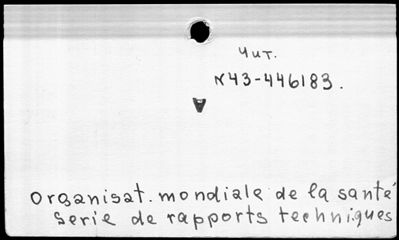 Чит.
N43-446183.
Organisat. mondiale de la santé
Serie de rapports techniques